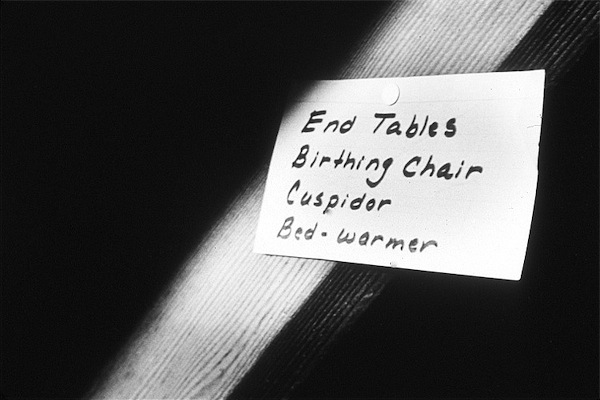 End Tables
Birthing Chair
Cuspidor
Bed-warmer